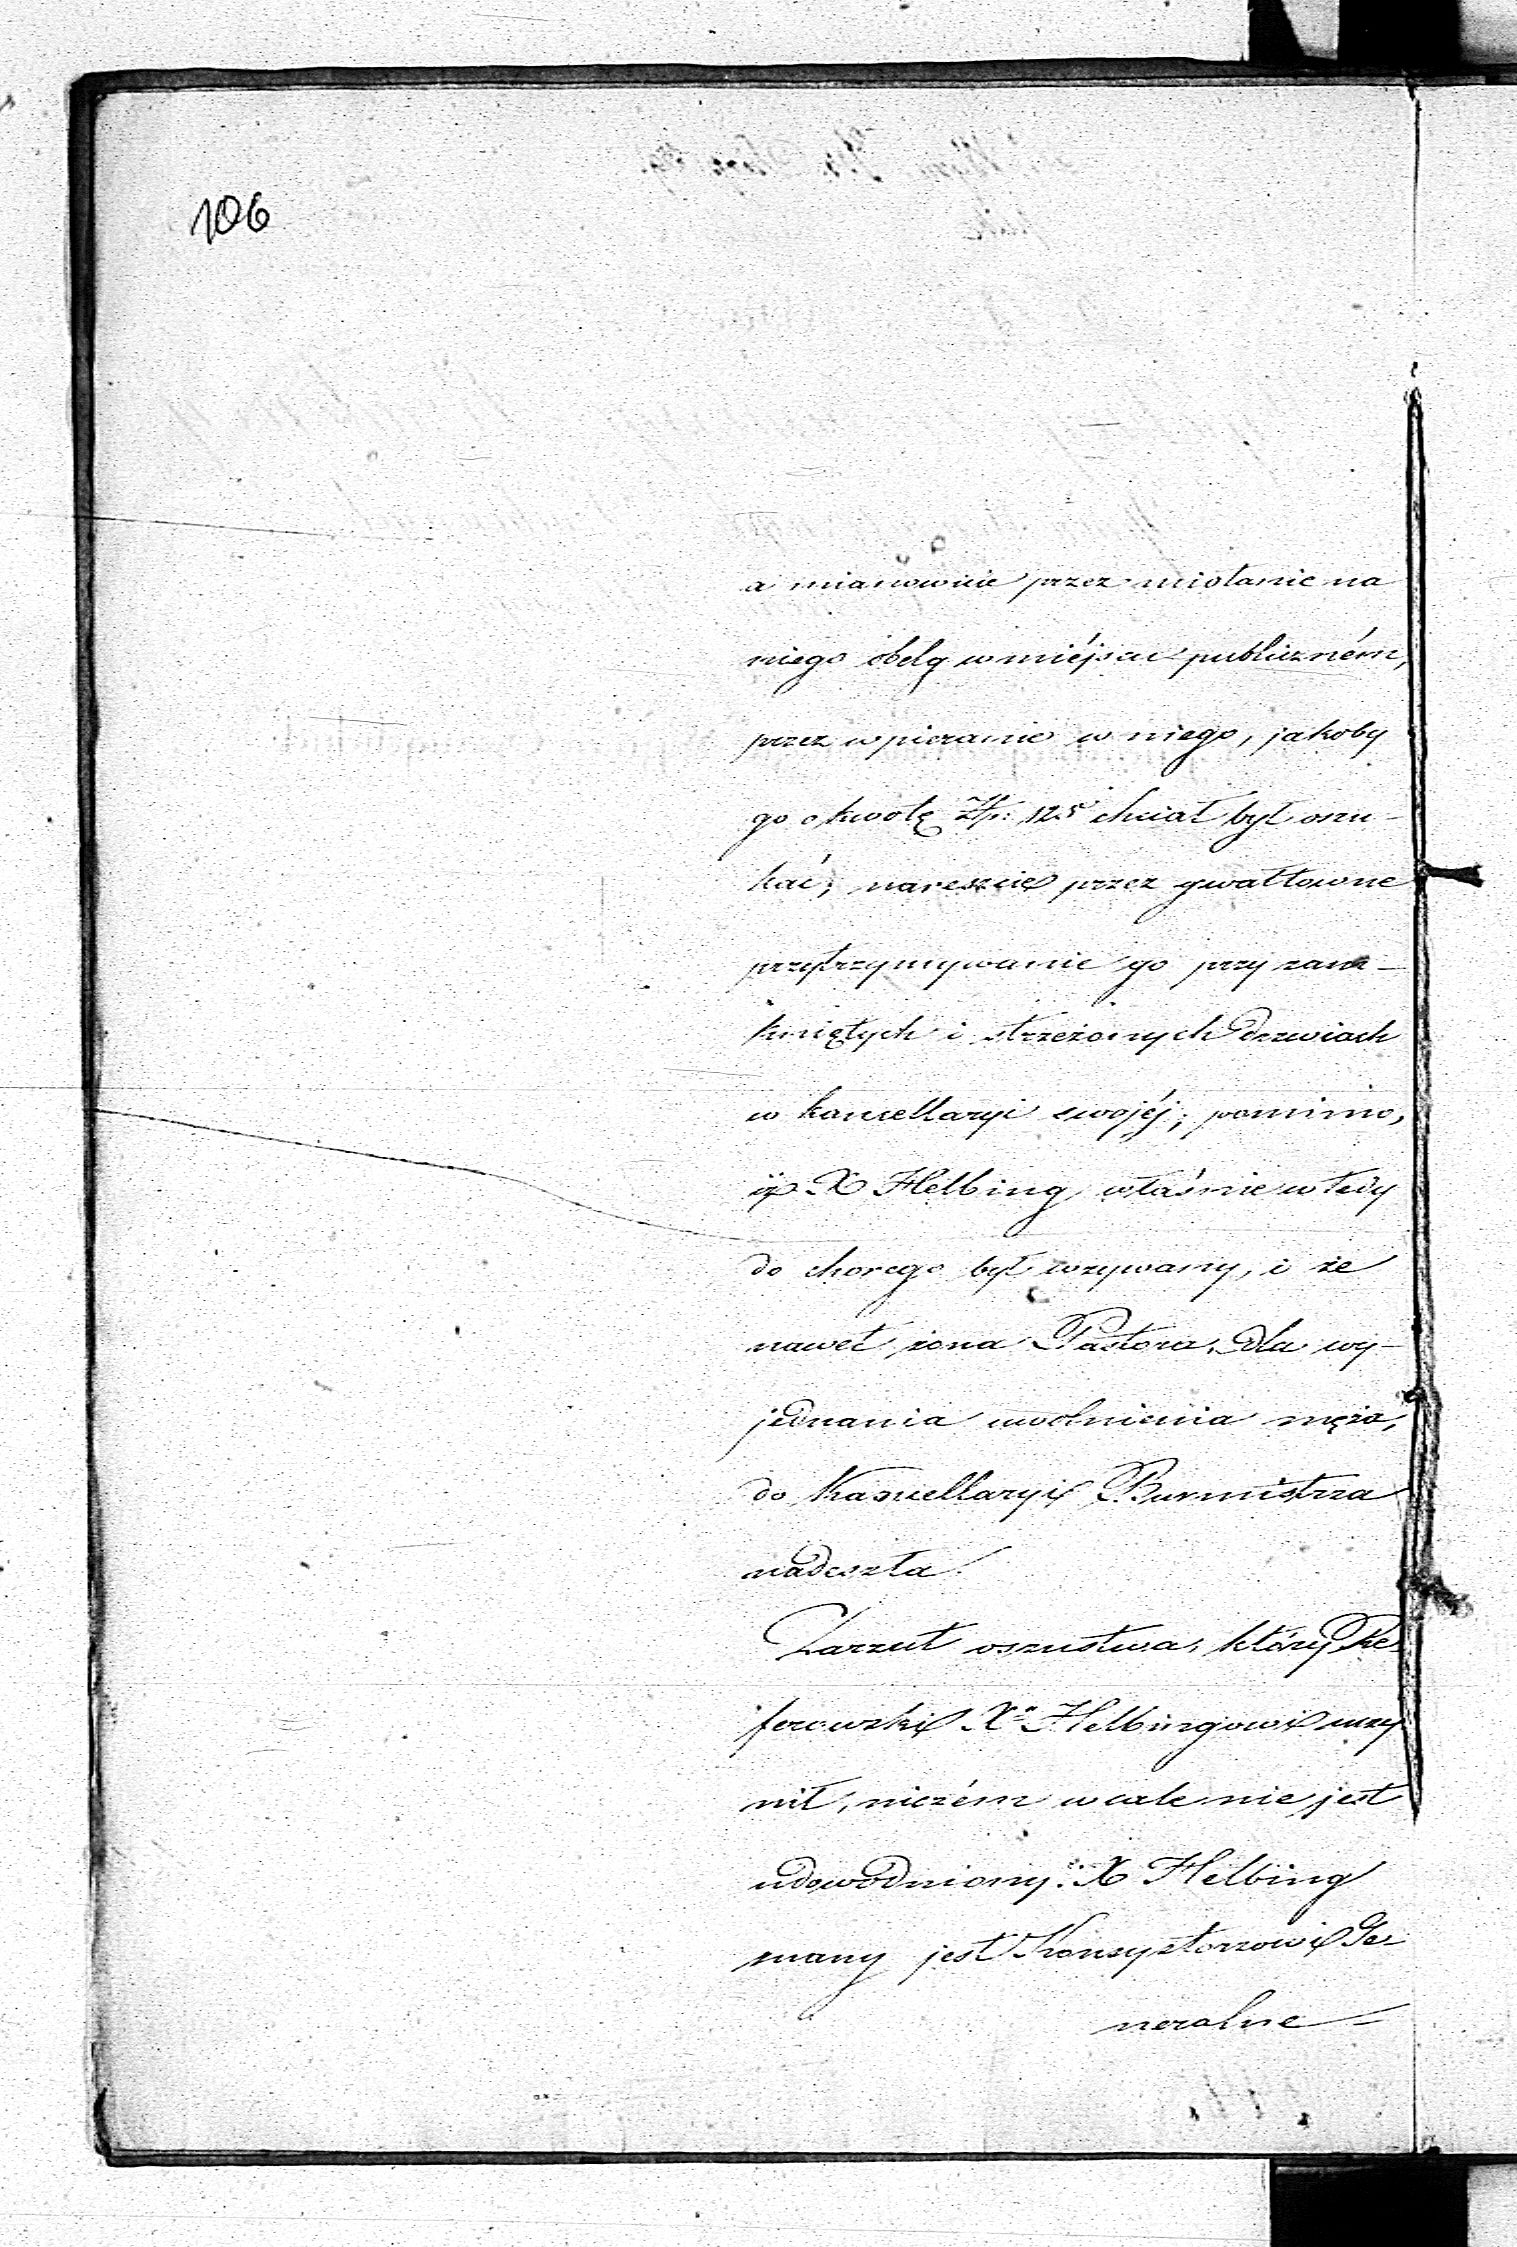 106
a mianowicie przez miotanie na
niego obelg w miéjscu publiczném,
przez wpieranie w niego, jakoby
go o kwotę Złp: 125 chciał był oszu-
kać; nareszcie przez gwałtowne
przytrzymywanie go przy zam-
kniętych i strzeżonych drzwiach
w kancellaryi swojéj; pomimo,
iż X Helbing, właśnie wtedy
do chorego był wzywany, i że
nawet żona Pastora, dla wy-
jednania uwolnienia męża,
do Kancellaryi Burmistrza
nadeszła.
Zarzut oszustwa, który
ferowski Xo Helbingowi uczy
nił, niczém wcale nie jest
udowodniony: X Helbing
znany jest Konsystorzowi Ge-
neralne-